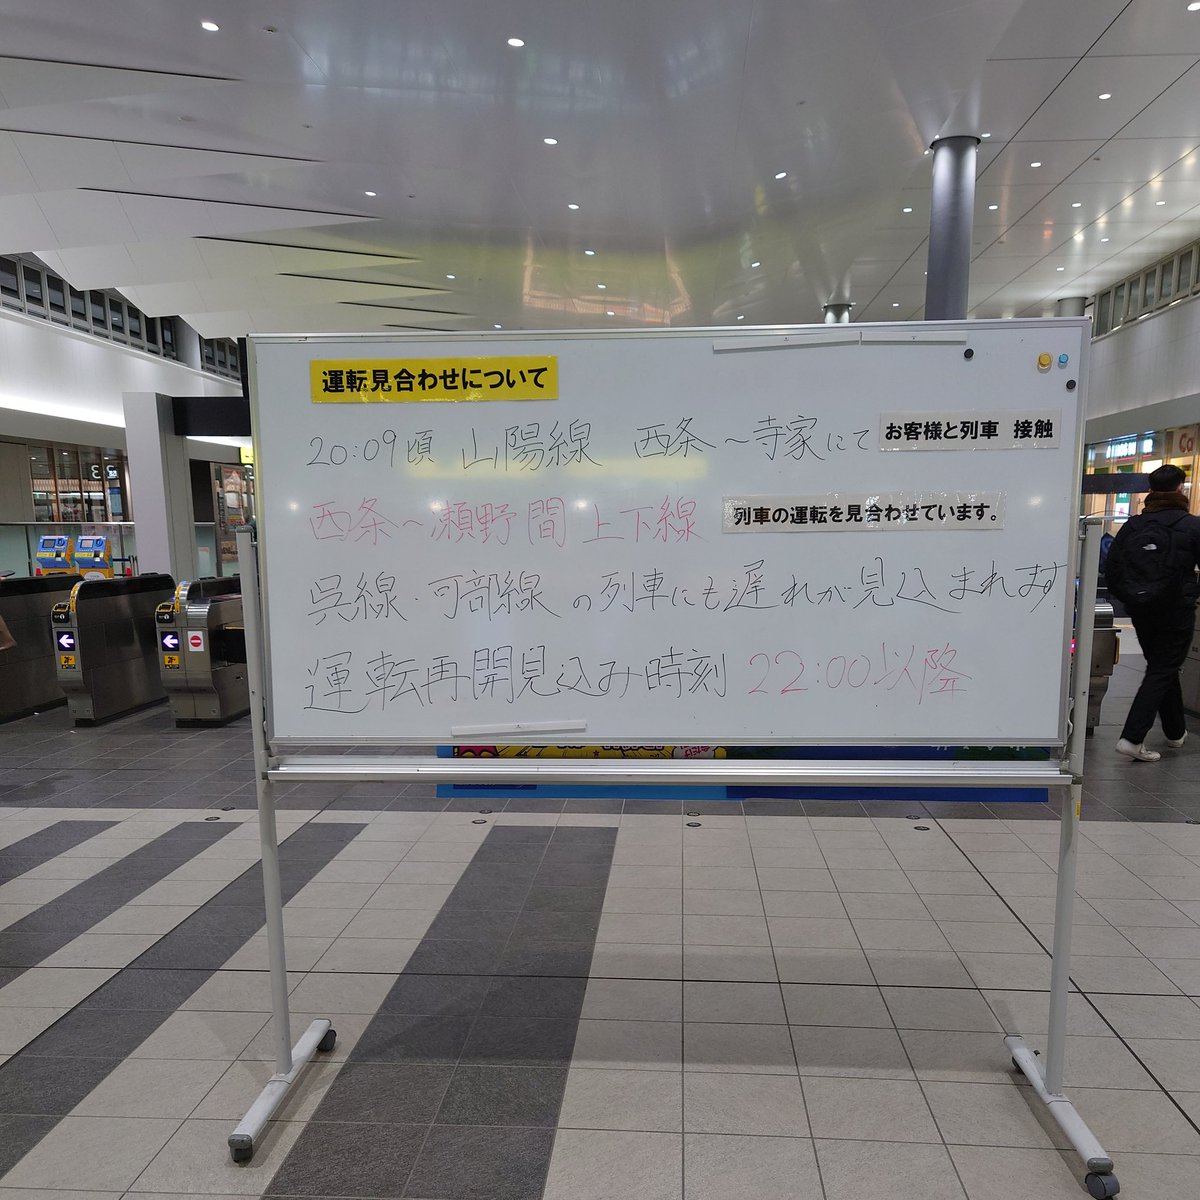 運転見合わせについて
20:09頃 山陽線 西条～寺家にて お客様と列車 接触
西条～瀬野間 上下線 列車の運転を見合わせています。
呉線・可部線の列車にも遅れが見込まれます
運転再開見込み時刻 22:00以降